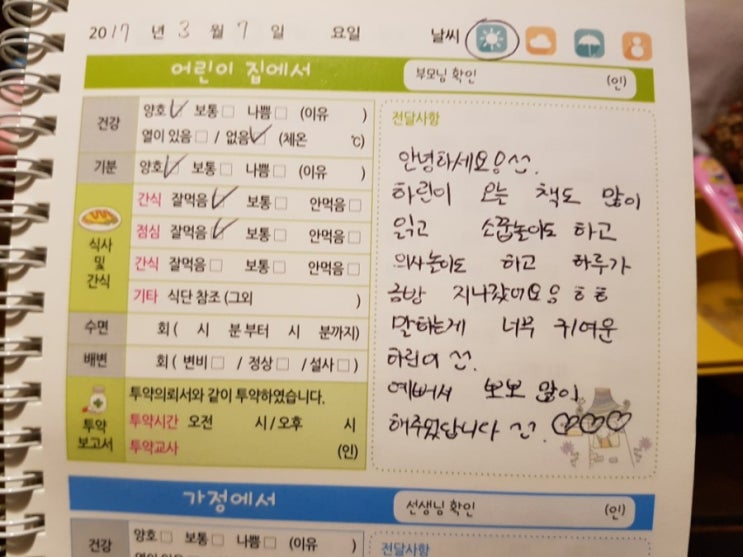 2017 년 3 월 7 일 요일 날씨
어린이 집에서 부모님 확인 (인)
건강 양호 보통 나쁨 (이유 )
열이 있음 / 없음 (체온 ℃)
기분 양호 보통 나쁨 (이유 )
식사 및 간식
간식 잘먹음 보통 안먹음
점심 잘먹음 보통 안먹음
간식 잘먹음 보통 안먹음
기타 식단 참조 (그외 )
수면 회 ( 시 분부터 시 분까지)
배변 회 ( 변비 / 정상 / 설사 )
투약 보고서
투약의뢰서와 같이 투약하였습니다.
투약시간 오전 시 / 오후 시
투약교사 (인)
전달사항
안녕하세요 ^^.
하린이 오늘 책도 많이
읽고 소꿉놀이도 하고
의사놀이도 하고 하루가
금방 지나갔어요 ㅎㅎ
말하는게 너무 귀여운
하린이 ^^.
예뻐서 뽀뽀 많이
해주었답니다 ^^. ♡♡♡
가정에서 선생님 확인 (인)
건강 양호 보통 나쁨 (이유 )
전달사항